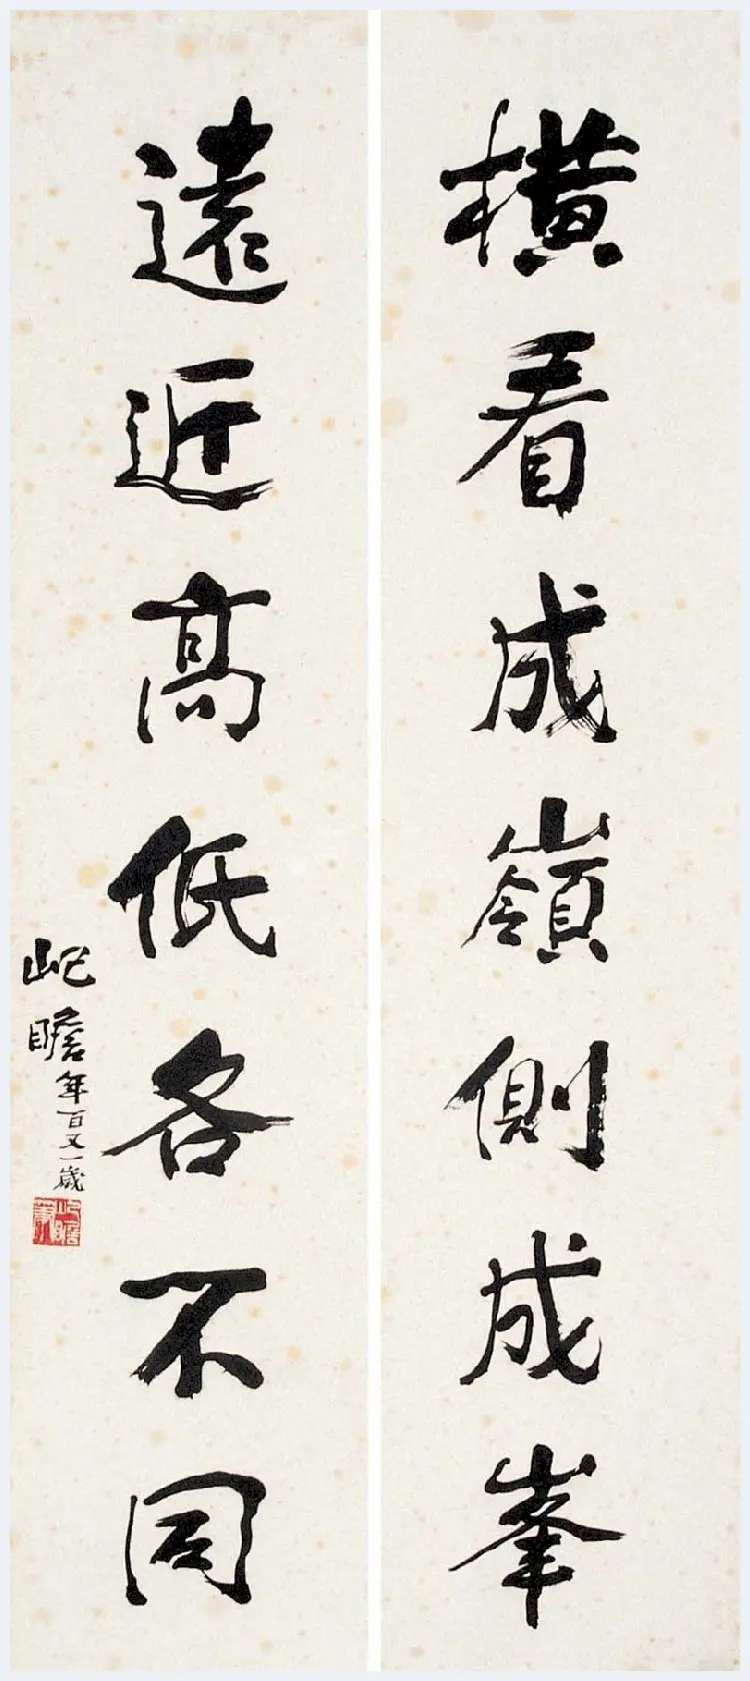 橫看成嶺側成峯
遠近高低各不同
屺瞻年百又一歲